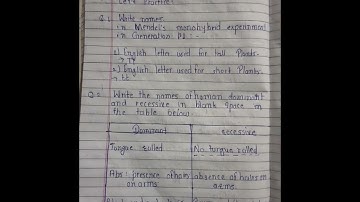 Let's Practice
Q:1 Write names
in Mendel's monohybrid experiment
in Generation P1:-
1) English letter used for tall Plants
→ TT
2) English letter used for short Plants
→ tt
Q:2 Write the names of human dominant
and recessive in blank space in
the table below.
Dominant recessive
Tongue rolled No tongue rolled
Abs: presence of hales absence of hales in
on arms arms